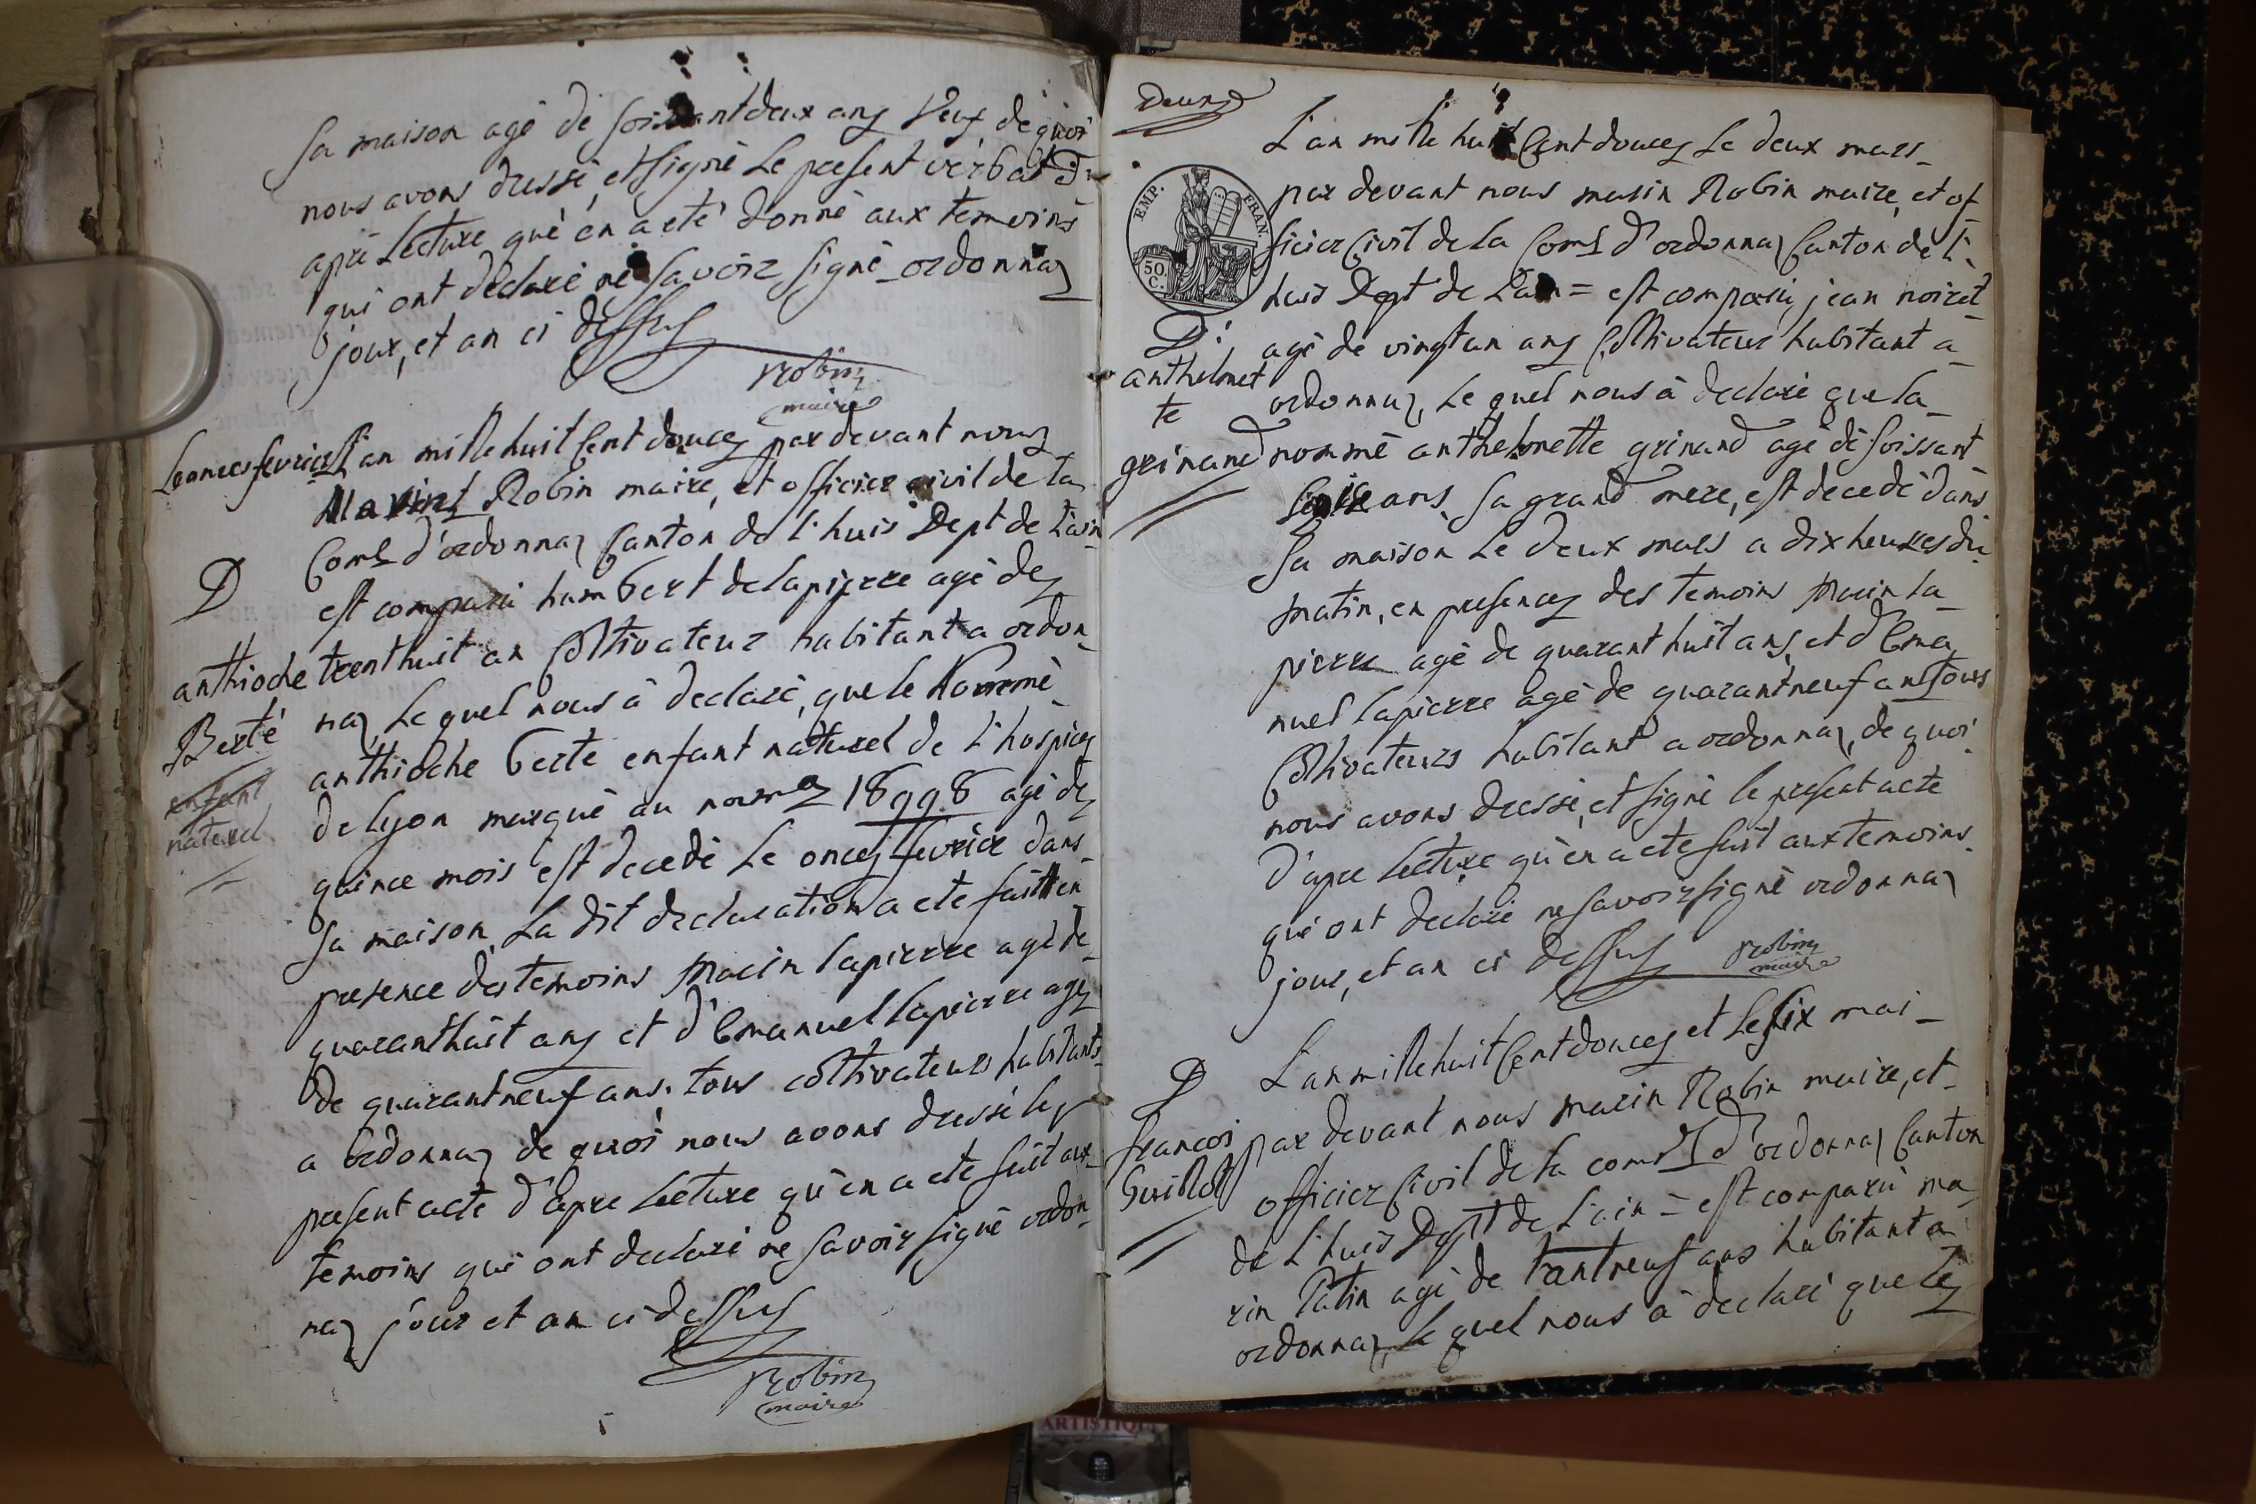 sa maison agé dé soissantdeux ans veuf, dé quoi
nous avons dressé, et signé Le present verbal D
apré Lecture qué én a eté donné aux temoins
qui ont declaré né savoir signé ordonnaz
jour, et an ci dessus
Robin
maire
Leonces fevrier L'an mille huit Cent douces par devant nous
Marin Robin maire, et officier civil de la
Com^e d'ordonnaz Canton de l'huis Dept de L'ain
D
est comparu humbert delapierre agé de
anthioche
trenthuit an Coltivateur habitant a ordon-
Berté
naz, Le quel nous à declaré, que le Nommé
enfant
anthioche berte enfant naturel de l'hospice
naturel
de lyon marqué au nome 18998 agé de
quince mois est decedé Le onces fevrier dans
sa maison, La dit declaration a ete fait en
presence des temoins Marin lapierre agé de
quaranthuit ans et d'Emanuel lapierre agé
de quarantneuf ans. tous coltivateurs habitants
a ordonnaz de quoi nous avons dressé le
present acte d'apre Lecture qu'en a ete fait aux
temoins qui ont declaré ne savoir signé ordon-
naz jour et an ci dessus
Robin
maire
Deuxe
L'an mille huit Cent douces Le deux mars
EMP. FRAN.
50. C.
par devant nous marin Robin maire, et of-
ficier Civil de la Com^e d'ordonnaz Canton de l'-
huis Dept de L'ain = est comparu, jean noiret
D.
agé de vingtun ans Coltivateur habitant a
anthelmet
te
ordonnaz, Le quel nous à declaré que la
grinand
nommé anthelmette grinand agé dé soissant
seise ans, sa grand mere, est decedé dans
sa maison Le deux mars a dix heures du
matin, en presences des temoins Marin la-
pierre agé de quaranthuit ans, et d'Ema
nuel lapierre agé de quarantneuf ans tous
Coltivateurs habitant a ordonnaz, de quoi
nous avons dressé, et signé le present acte
d'apre Lecture qu'en a ete fait aux temoins
qui ont declaré ne savoir signé ordonnaz
jour, et an ci dessus
Robin
maire
L'an mille huit Cent douces et Le six mai
D
par devant nous marin Robin maire, et
francoi
Guillot
officier Civil de la com^e d'ordonnaz Canton
de L'huis Dept de L'ain = est comparu ma
rin Patin agé de trantneuf ans habitant a
ordonnaz, Le quel nous à declaré que Le
ARTISTIQUE